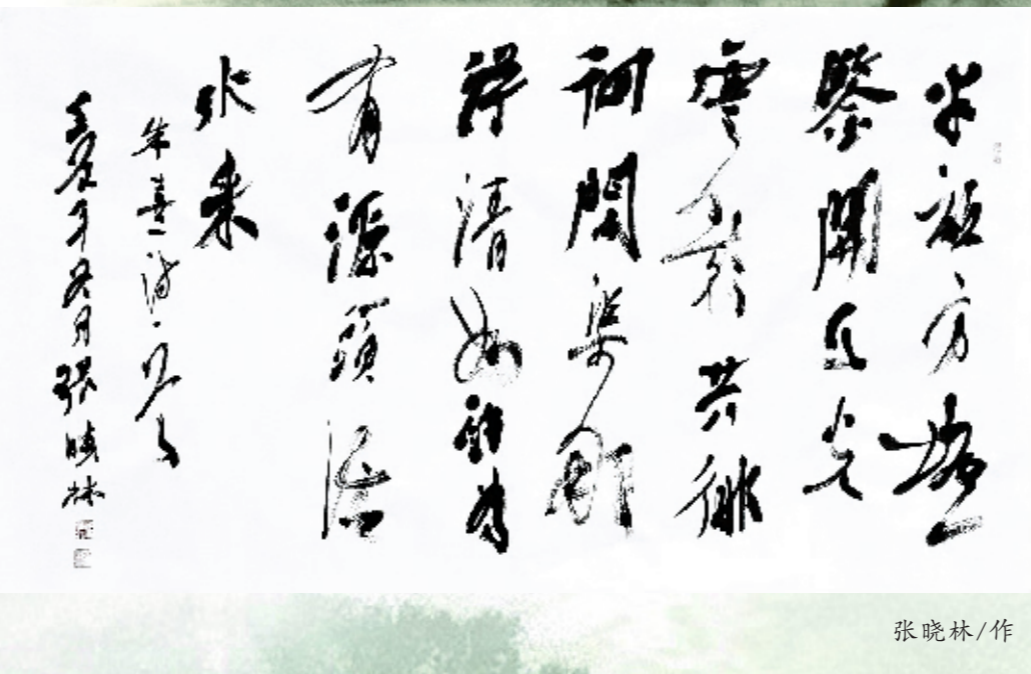 半畝方塘一
鑒開天光
雲影共徘
徊問渠那
得清如許為
有源頭活
水來
朱熹詩一首
壬辰年冬月張曉林
张晓林/作